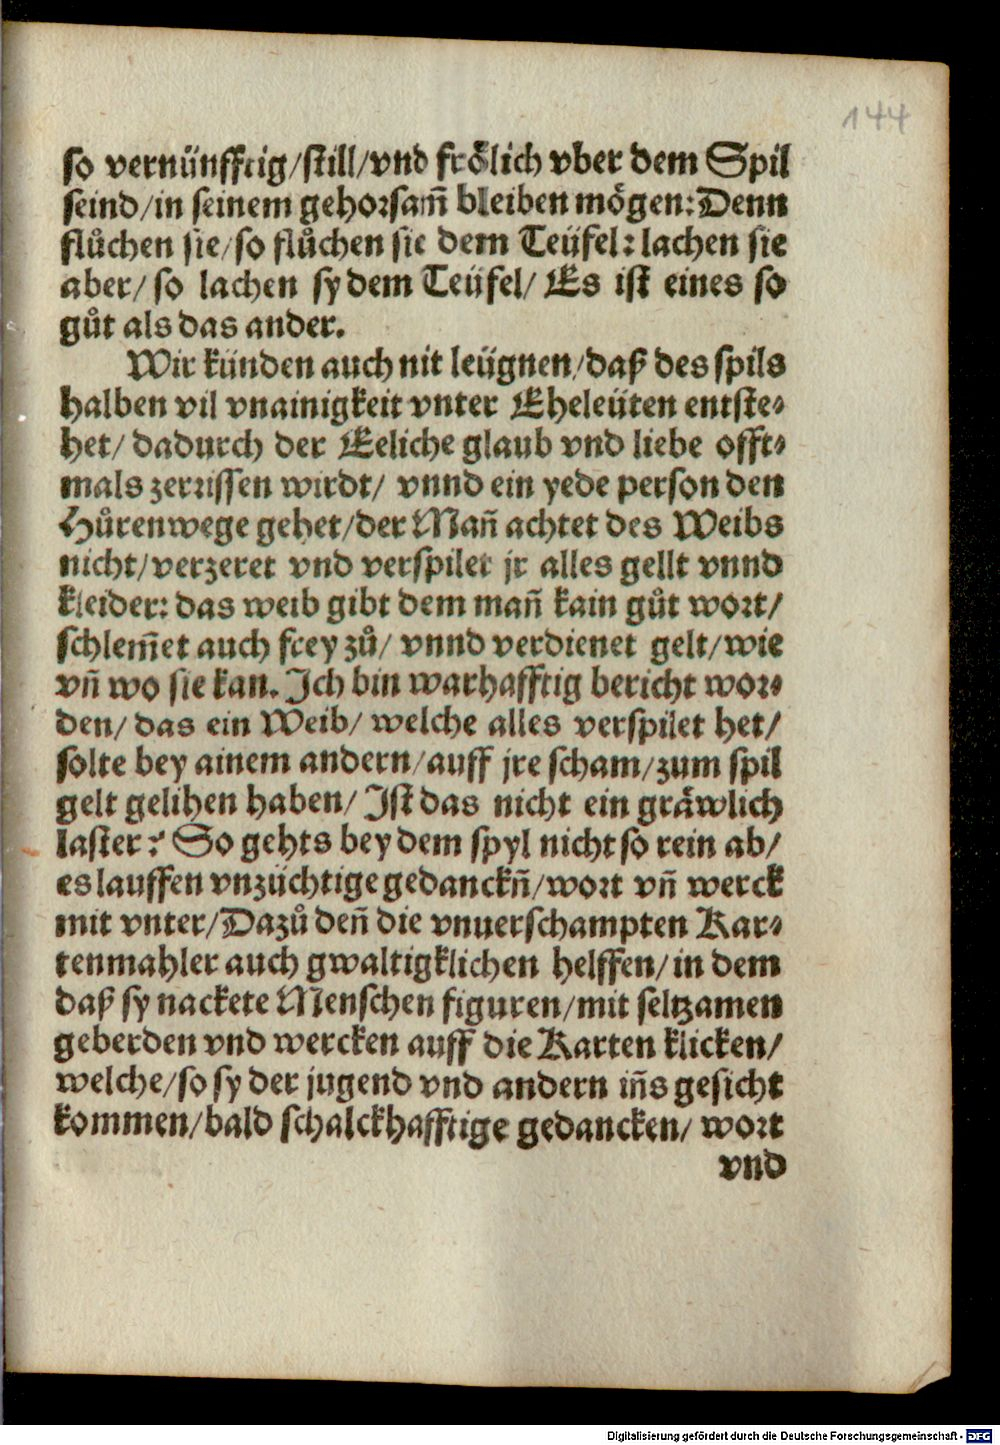 144
so vernünfftig/still/vnd frölich vber dem Spil
seind/in seinem gehorsam̄ bleiben mögen:Denn
flůchen sie/so flůchen sie dem Teüfel: lachen sie
aber/ so lachen sy dem Teüfel/ Es ist eines so
gůt als das ander.
Wir künden auch nit leügnen/daß des spils
halben vil vnainigkeit vnter Eheleüten entste⸗
het/ dadurch der Eeliche glaub vnd liebe offt⸗
mals zerrissen wirdt/ vnnd ein yede person den
Hůrenwege gehet/der Man̄ achtet des Weibs
nicht/verzeret vnd verspilet jr alles gellt vnnd
kleider: das weib gibt dem man̄ kain gůt wort/
schlem̄et auch frey zů/ vnnd verdienet gelt/wie
vn̄ wo sie kan. Ich bin warhafftig bericht wor⸗
den/ das ein Weib/ welche alles verspilet het/
solte bey ainem andern/auff jre scham/zum spil
gelt gelihen haben/ Ist das nicht ein gräwlich
laster? So gehts bey dem spyl nicht so rein ab/
es lauffen vnzüchtige gedanckn̄/wort vn̄ werck
mit vnter/Dazů den̄ die vnuerschampten Kar⸗
tenmahler auch gwaltigklichen helffen/in dem
daß sy nackete Menschen figuren/mit seltzamen
geberden vnd wercken auff die Karten klicken/
welche/so sy der jugend vnd andern in̄s gesicht
kommen/bald schalckhafftige gedancken/ wort
vnd
Digitalisierung gefördert durch die Deutsche Forschungsgemeinschaft - DFG